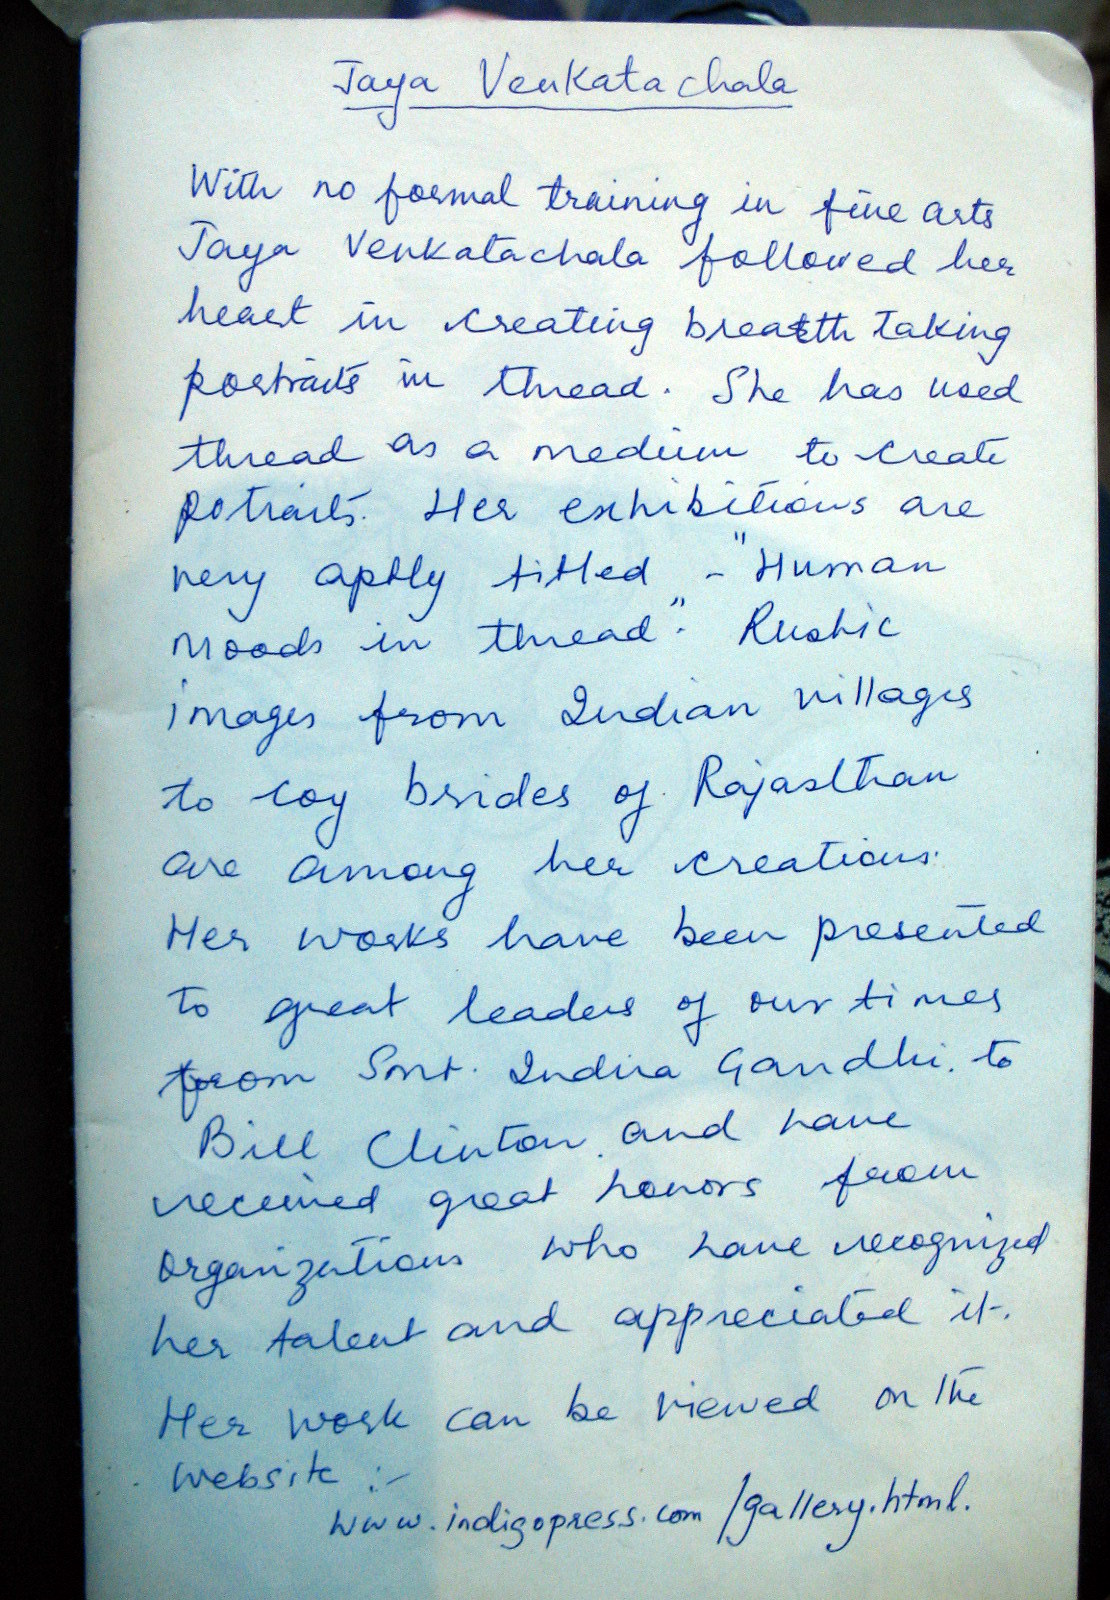 Jaya Venkatachala
With no formal training in fine arts
Jaya Venkatachala followed her
heart in creating breathtaking
portraits in thread. She has used
thread as a medium to create
potraits. Her exhibitions are
very aptly titled - "Human
Moods in thread". Rustic
images from Indian villages
to coy brides of Rajasthan
are among her creations.
Her works have been presented
to great leaders of our times
from Smt. Indira Gandhi. to
Bill Clinton and have
received great honors from
organizations who have recognized
her talent and appreciated it.
Her work can be viewed on the
website :-
www.indigopress.com/gallery.html.